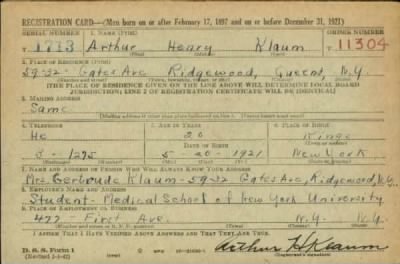 REGISTRATION CARD—(Men born on or after February 17, 1897 and on or before December 31, 1921)
SERIAL NUMBER 1. NAME (Print) ORDER NUMBER
T 1713 Arthur Henry Klaum 11304
(First) (Middle) (Last)
2. PLACE OF RESIDENCE (Print)
59-32 Gates Ave Ridgewood, Queens, N.Y.
(Number and street) (Town, township, village, or city) (County) (State)
[THE PLACE OF RESIDENCE GIVEN ON THE LINE ABOVE WILL DETERMINE LOCAL BOARD
JURISDICTION; LINE 2 OF REGISTRATION CERTIFICATE WILL BE IDENTICAL]
3. MAILING ADDRESS
Same
(Mailing address if other than place indicated on line 2. If same insert word same)
4. TELEPHONE 5. AGE IN YEARS 6. PLACE OF BIRTH
He 20 Kings
DATE OF BIRTH (Town or county)
5-1275 5-20-1921 New York
(Exchange) (Number) (Mo.) (Day) (Yr.) (State or country)
7. NAME AND ADDRESS OF PERSON WHO WILL ALWAYS KNOW YOUR ADDRESS
Mrs. Gertrude Klaum-59-32 Gates Ave, Ridgewood, N.Y.
8. EMPLOYER'S NAME AND ADDRESS
Student-Medical School of New York University
9. PLACE OF EMPLOYMENT OR BUSINESS
477 First Ave. N.Y. N.Y.
(Number and street or R. F. D. number) (Town) (County) (State)
I AFFIRM THAT I HAVE VERIFIED ABOVE ANSWERS AND THAT THEY ARE TRUE.
D. S. S. Form 1
Arthur H Klaum